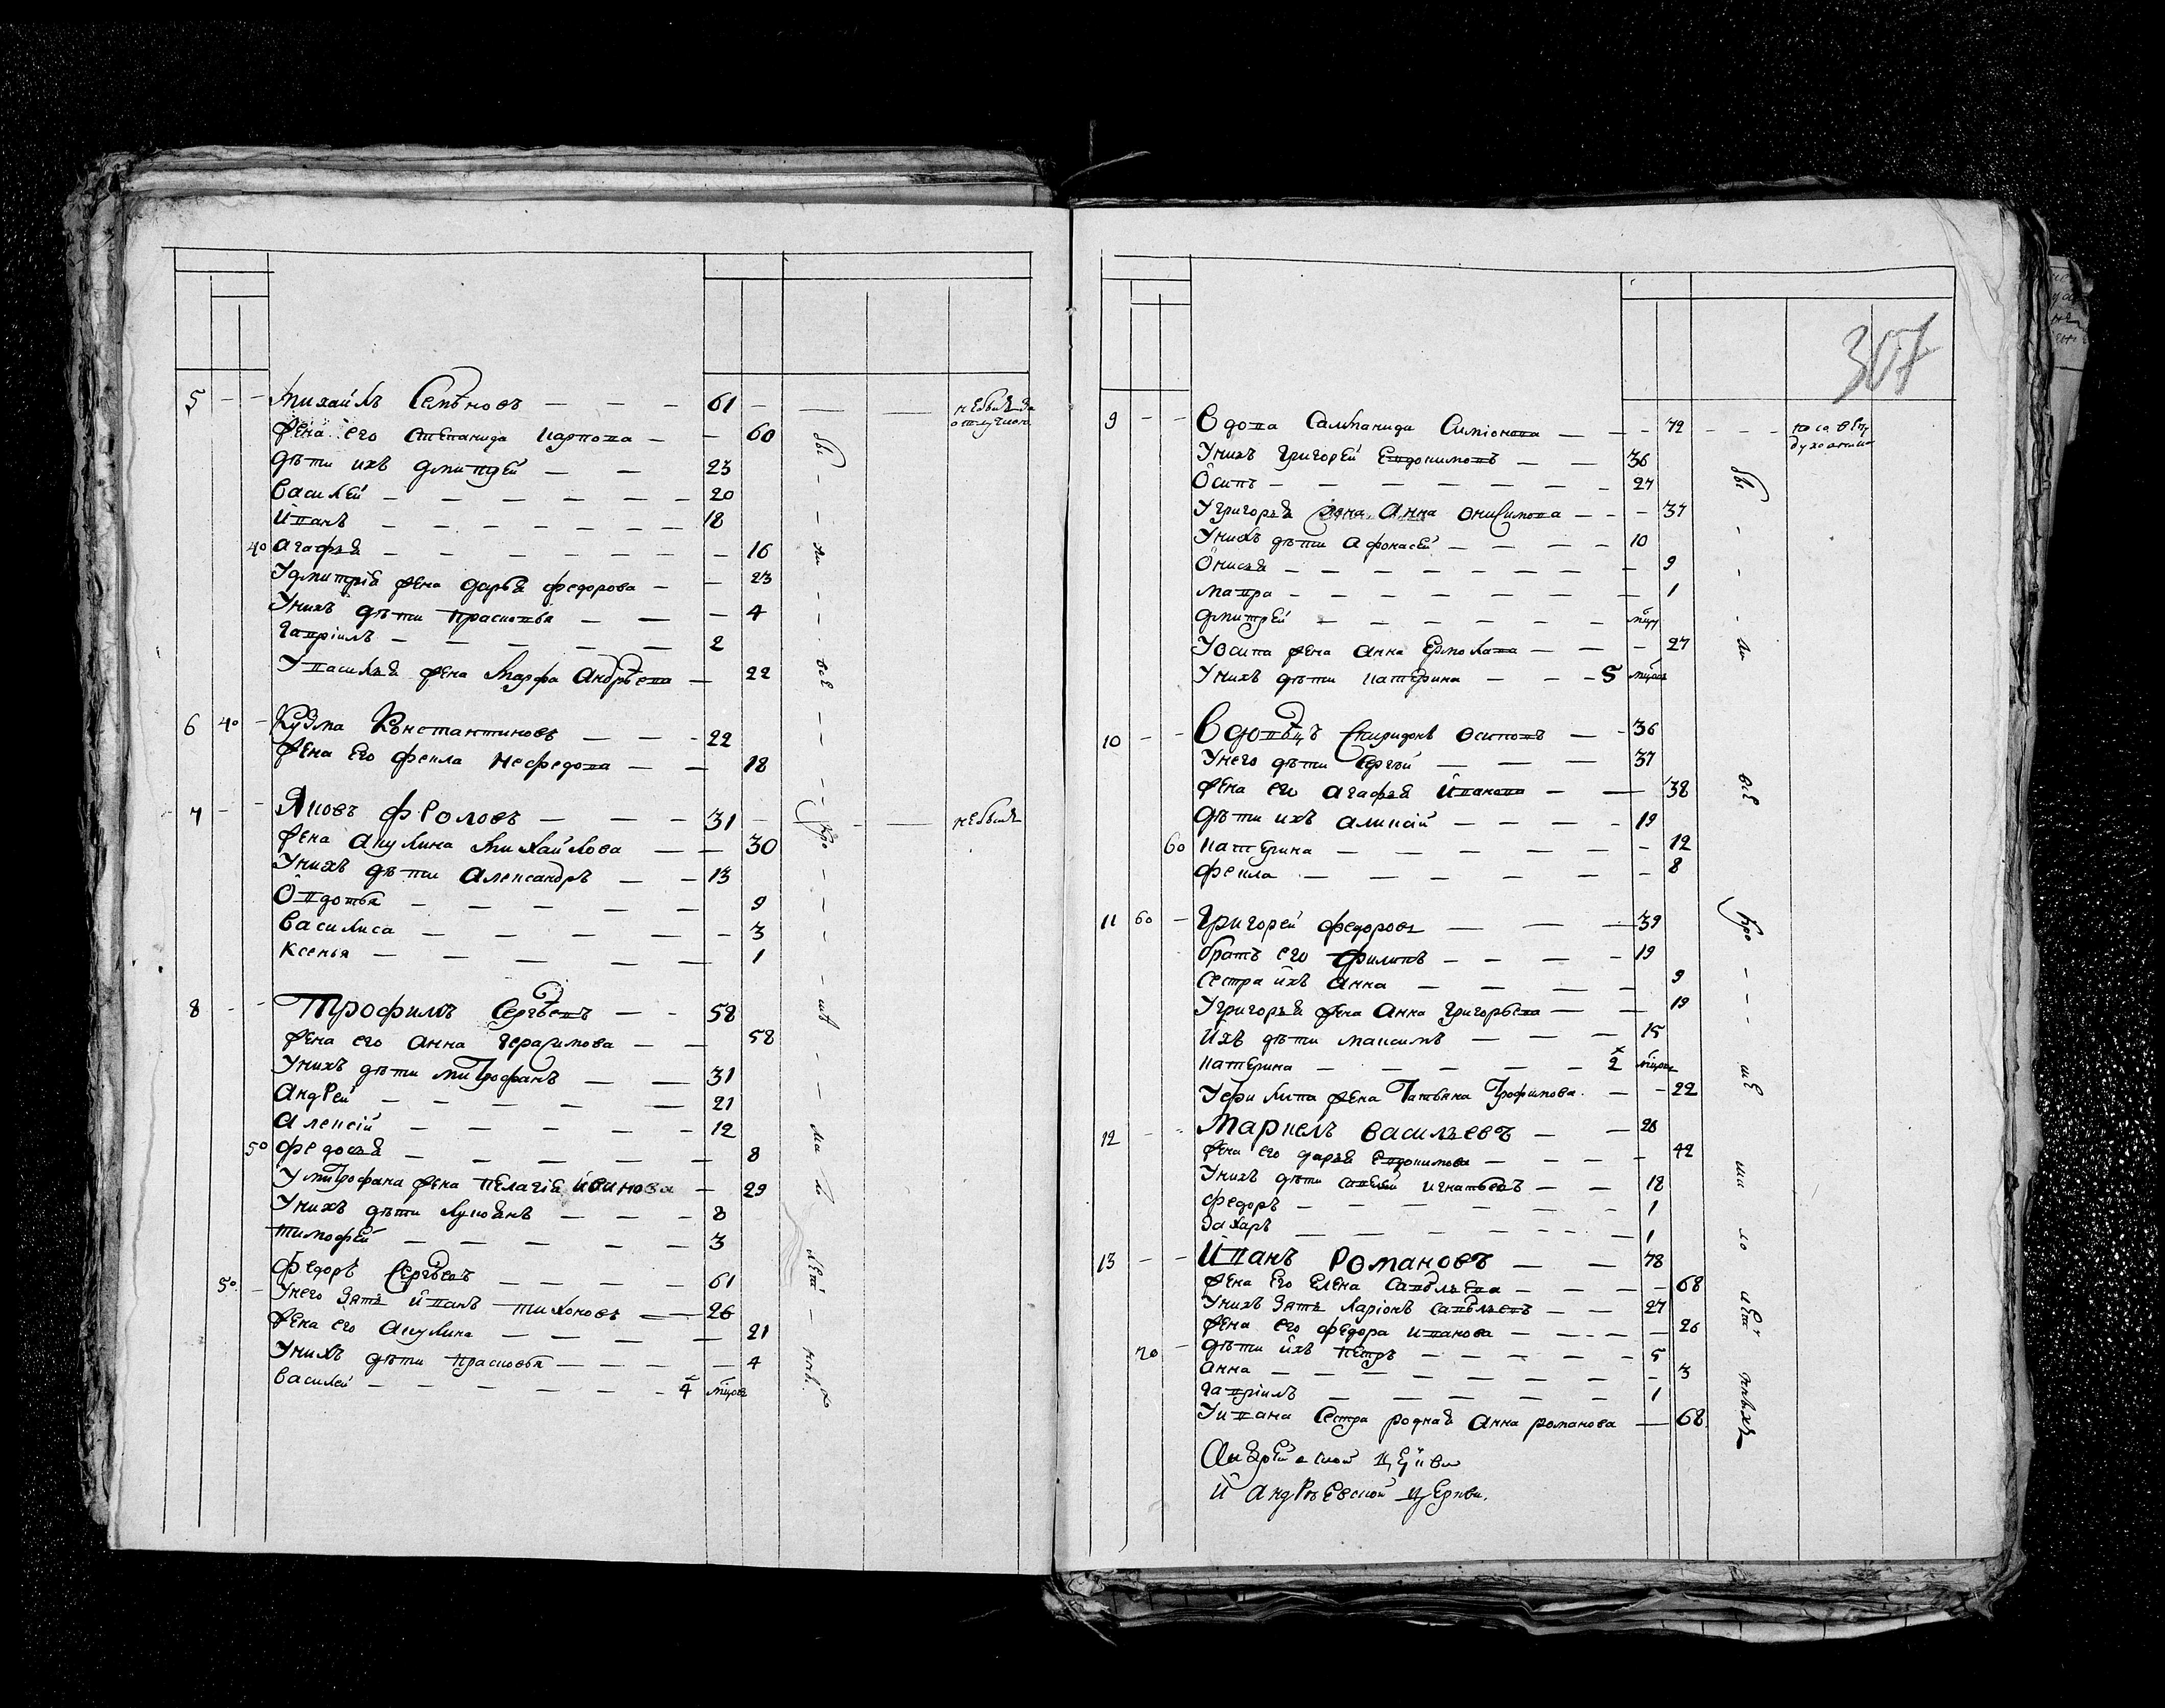 5 – – Михайлъ Семѣновъ – – – 61 – небылъ за отлучкою
Жена его степанида карпова – – 60
Дѣти ихъ дмитрей – – 23
Василей – – – – – – 20
Иванъ – – – – – – 18
40 агафья – – – – – – 16
У дмитрія жена дарья федорова – – 23
У нихъ дѣти прасковья – – – 4
гавріилъ – – – – – 2
У василья жена Марфа Андрѣева – 22
6 40 – Кузма Константиновъ – – – 22
Жена Его фекла нефедова – – 18
7 – – Яковъ фроловъ – – – 31 – небылъ
Жена акулина михайлова – – 30
У нихъ дѣти александръ – – 13
Овдотья – – – – – 9
василиса – – – – – – 3
ксенья – – – – – – 1
8 – – Трофимъ Сергѣевъ – – 58
Жена его анна герасимова – – 58
У нихъ дѣти митрофанъ – – 31
андрей – – – – – 21
алексій – – – – – 12
50 федосья – – – – – – 8
У митрофана жена пелагія ивинова – 29
У нихъ дѣти лукьянъ – – – 8
тимофей – – – – – 3
федоръ Сергѣевъ – – – – 61
50 – У него зять иванъ тихоновъ – – 26
Жена его акулина – – – – – 21
У нихъ дѣти прасковья – – – – – 4
василей – – – – – – – 4 міроп
бы – – ли – – всѣ – – – у – – – шѣ – – ма ло лѣт – нихъ
307
9 – – Вдова Саломанида Симіонова – – – 72 – – –
У нихъ григорей Евдокимовъ – – 36
Осипъ – – – – – – – 27
У григорья жена Анна онисимова – – – 37
У нихъ дѣти афонасей – – – – 10
Онисья – – – – – – – – 9
мавра – – – – – – – – 1
дмитрей – – – – – – –
У осипа жена анна Ермолаева – – – 27
У нихъ дѣти катерина – – – 5
10 – – Вдовѣцъ Спиридонъ осиповъ – – 36
У него дѣти Сергѣй – – – 37
Жена его агафья Иванова – – 38
Дѣти ихъ алексій – – – – 19
60 катерина – – – – – – 12
фекла – – – – – – 8
11 60 – Григорей федоровъ – – – 39
братъ его филипъ – – – – 19
сестра ихъ анна – – – – 9
У григорья жена Анна григорьева – – 19
Ихъ дѣти максимъ – – – 15
катерина – – – – – 2
У филипа жена Татьяна Трофимова – – 22
12 – – Маркелъ василъевъ – – 26
Жена его дарья Евдокимова – – – – 42
У нихъ дѣти савелей игнатьевъ – – 18
федоръ – – – – – – 1
захаръ – – – – – – 1
13 – – Иванъ романовъ – – 78
Жена Его Елена Савельева – – – – 68
У нихъ зять ларіонъ савельевъ – – 27
Жена его федора иванова – – – – – 26
70 – дѣти ихъ петръ – – – – – 5
анна – – – – – – – – 3
гавріилъ – – – – – – 1
У ивана сестра родная анна романова – 68
И андрѣевской церкви.